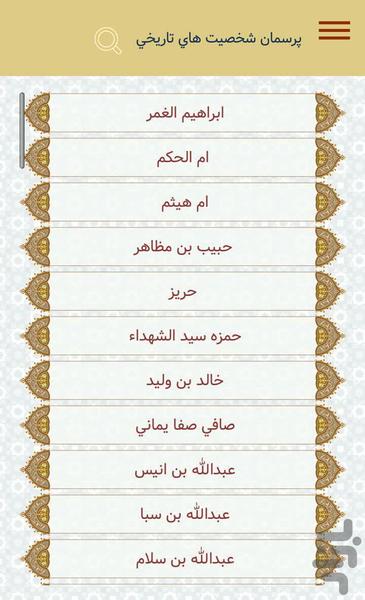 پرسمان شخصيت هاي تاريخي
ابراهيم الغمر
ام الحکم
ام هيثم
حبيب بن مظاهر
حريز
حمزه سيد الشهداء
خالد بن وليد
صافي صفا يماني
عبدالله بن انيس
عبدالله بن سبا
عبدالله بن سلام